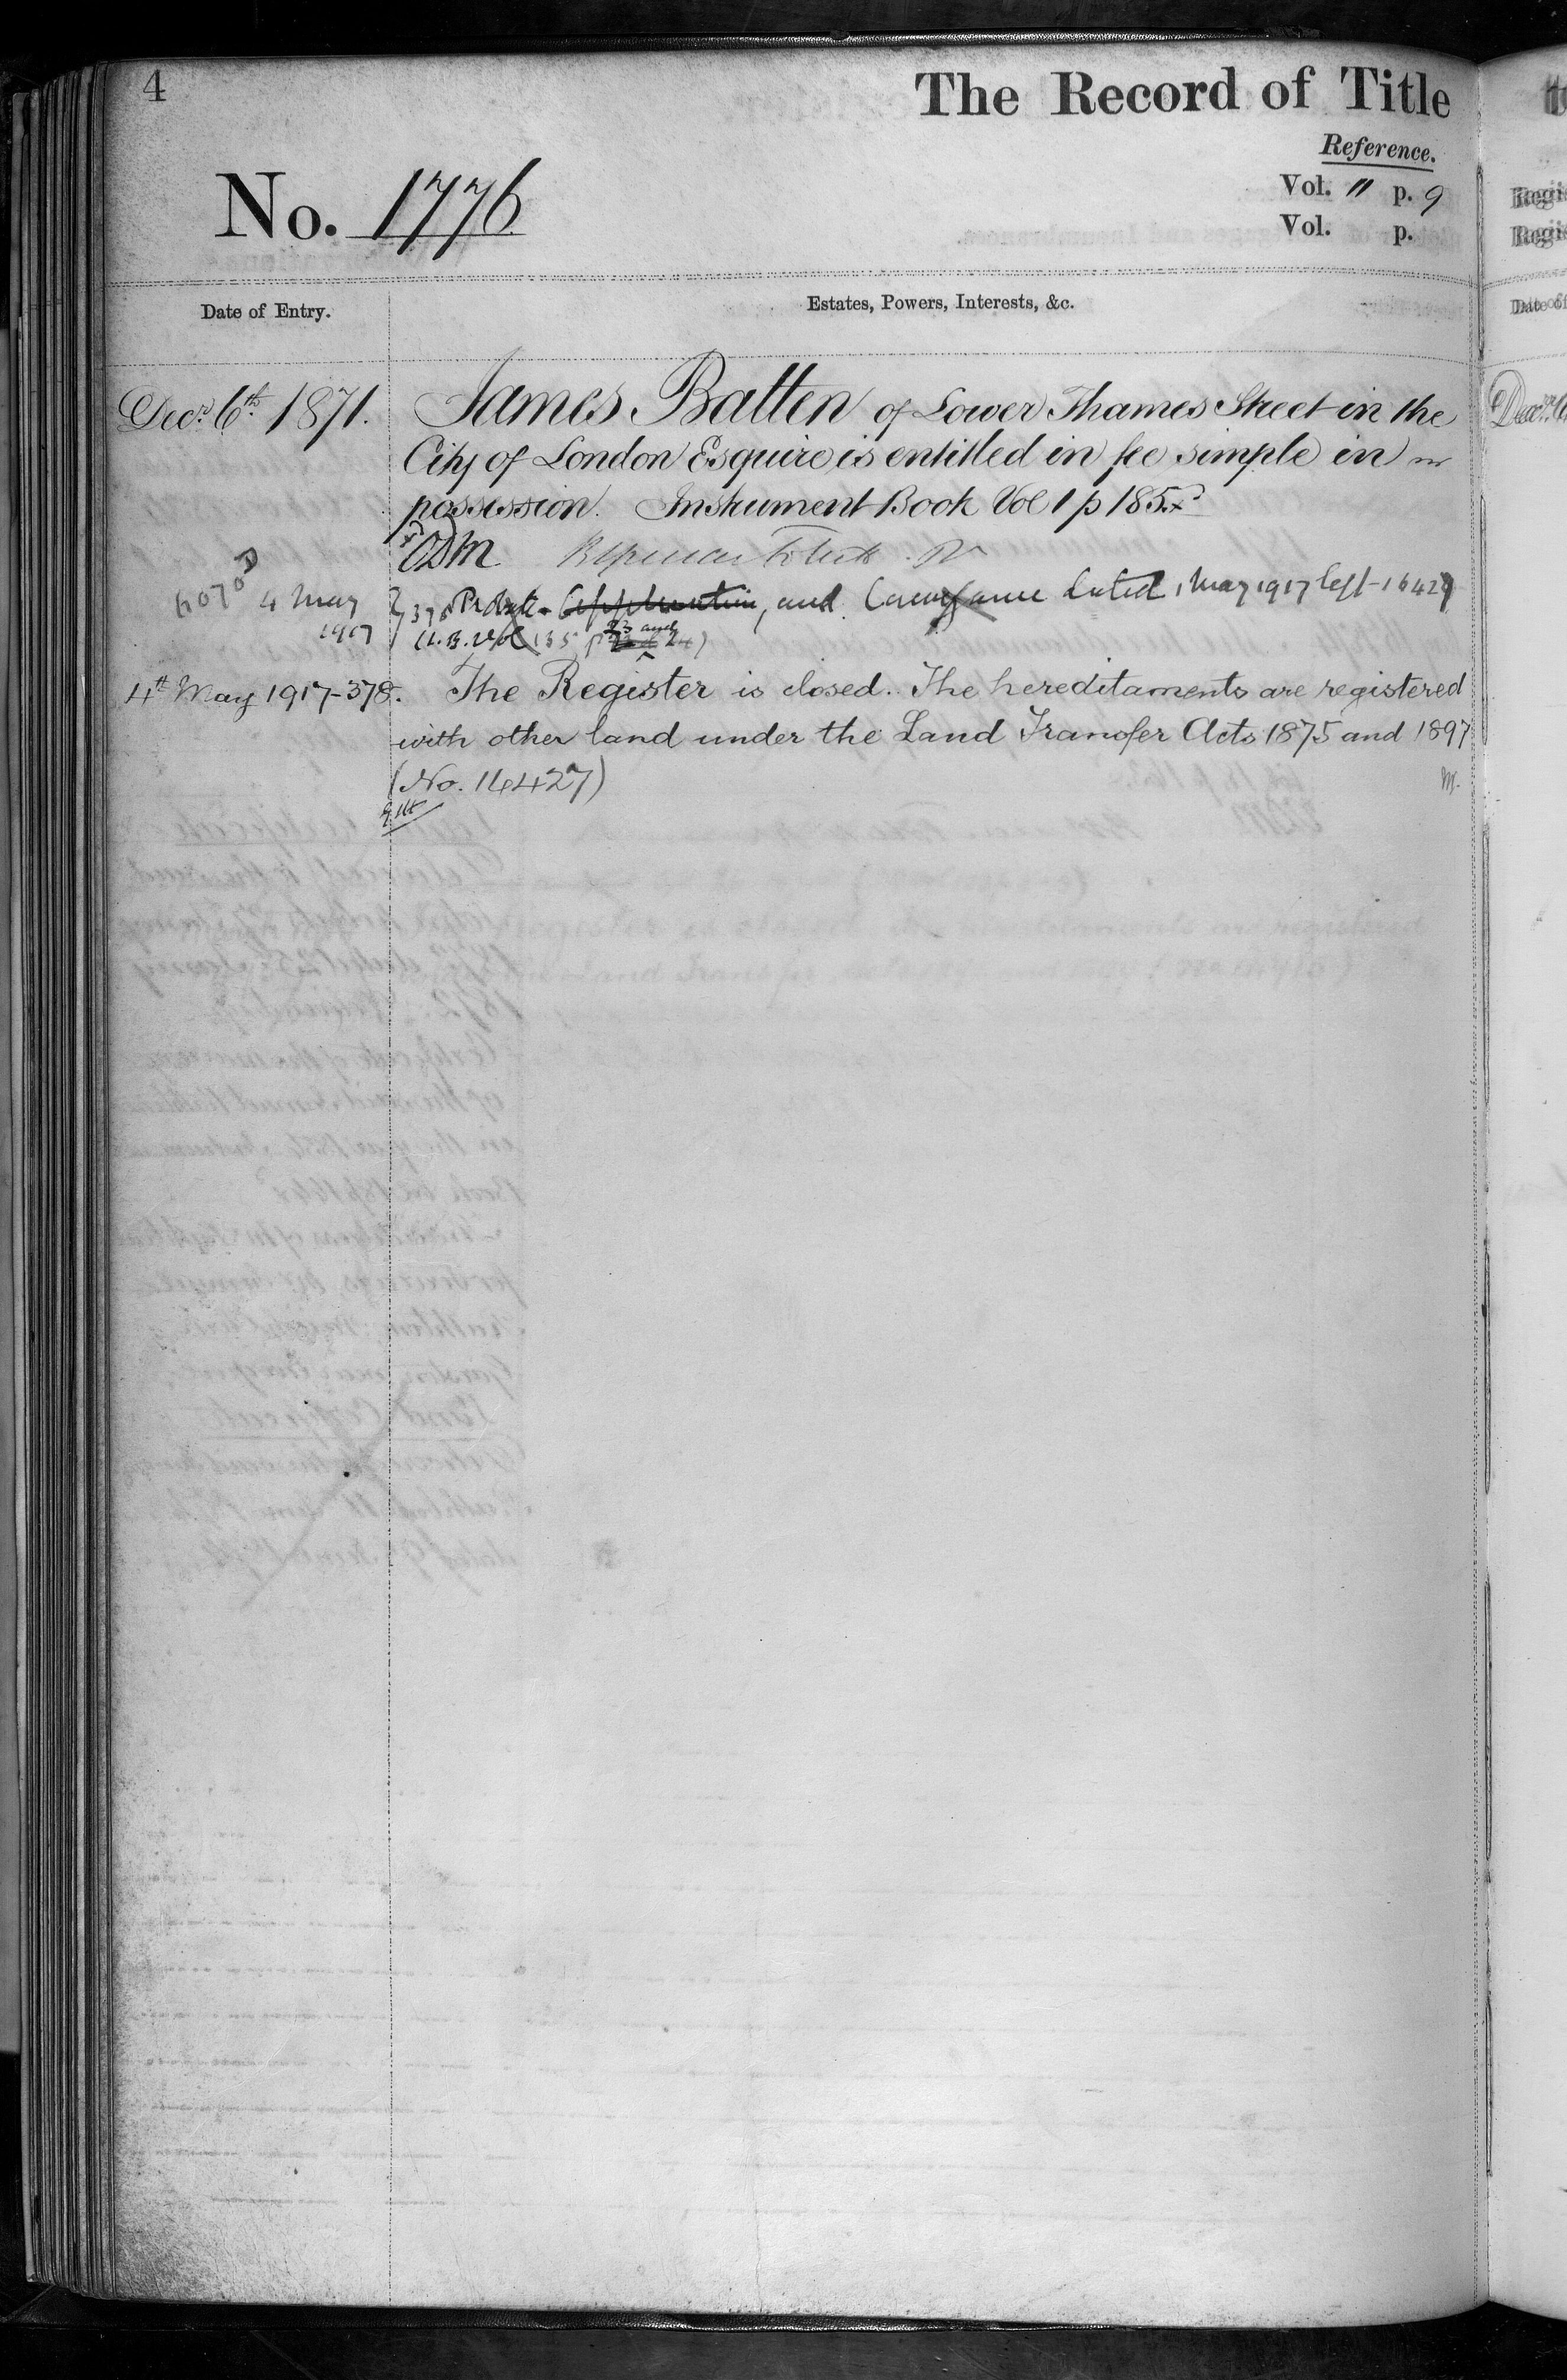 4
The Record of Title
Reference.
Vol. 11 p. 9
Vol. p.
No. 1776
Date of Entry.
Estates, Powers, Interests, &c.
Decr. 6th 1871. James Batten of Lower Thames Street in the
City of London Esquire is entitled in fee simple in
possession. Instrument Book Vol 1 p 185
4 May 378 Probate Application, and Conveyance dated 1 May 1917 left
1917 23 and 24
4th May 1917-378. The Register is closed. The hereditaments are registered
with other land under the Land Transfer Acts 1875 and 1897
(No. 16427)